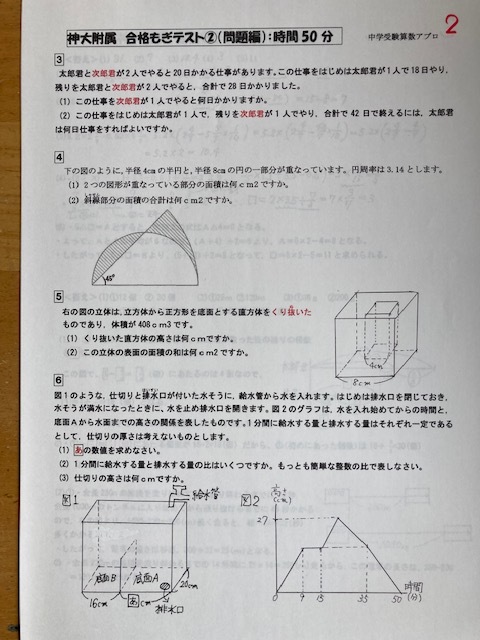 神大附属 合格もぎテスト②(問題編):時間50分
中学受験算数アプロ
2
3
太郎君と次郎君が2人でやると20日かかる仕事があります。この仕事をはじめは太郎君が1人で18日やり、
残りを太郎君と次郎君が2人でやると、合計で28日かかりました。
(1) この仕事を次郎君が1人でやると何日かかりますか。
(2) この仕事をはじめは太郎君が1人で、残りを次郎君が1人でやり、合計42日で終えるには、太郎君
は何日仕事をすればよいですか。
4
下の図のように,半径4cmの半円と,半径8cmの円の一部分が重なっています。円周率は3.14とします。
(1) 2つの図形が重なっている部分の面積は何cm2ですか。
(2) 斜線部分の面積の合計は何cm2ですか。
45°
5
右の図の立体は,立方体から正方形を底面とする直方体をくり抜いた
ものであり,体積が408cm3です。
(1) くり抜いた直方体の高さは何cmですか。
(2) この立体の表面の面積の和は何cm2ですか。
4cm
8cm
6
図1のような、仕切りと排水口が付いた水そうに、給水管から水を入れます。はじめは排水口を閉じておき、
水そうが満水になったときに、水を止め排水口を開きます。図2のグラフは、水を入れ始めてからの時間と、
底面Aから水面までの高さの関係を表したものです。1分間に給水する量と排水する量はそれぞれ一定である
として、仕切りの厚さは考えないものとします。
(1) あの数値を求めなさい。
(2) 1分間に給水する量と排水する量の比はいくつですか。もっとも簡単な整数の比で表しなさい。
(3) 仕切りの高さは何cmですか。
図1
給水管
底面B
底面A
16cm
あcm
20cm
排水口
図2
高さ
(cm)
27
0
9
15
35
50
時間
(分)